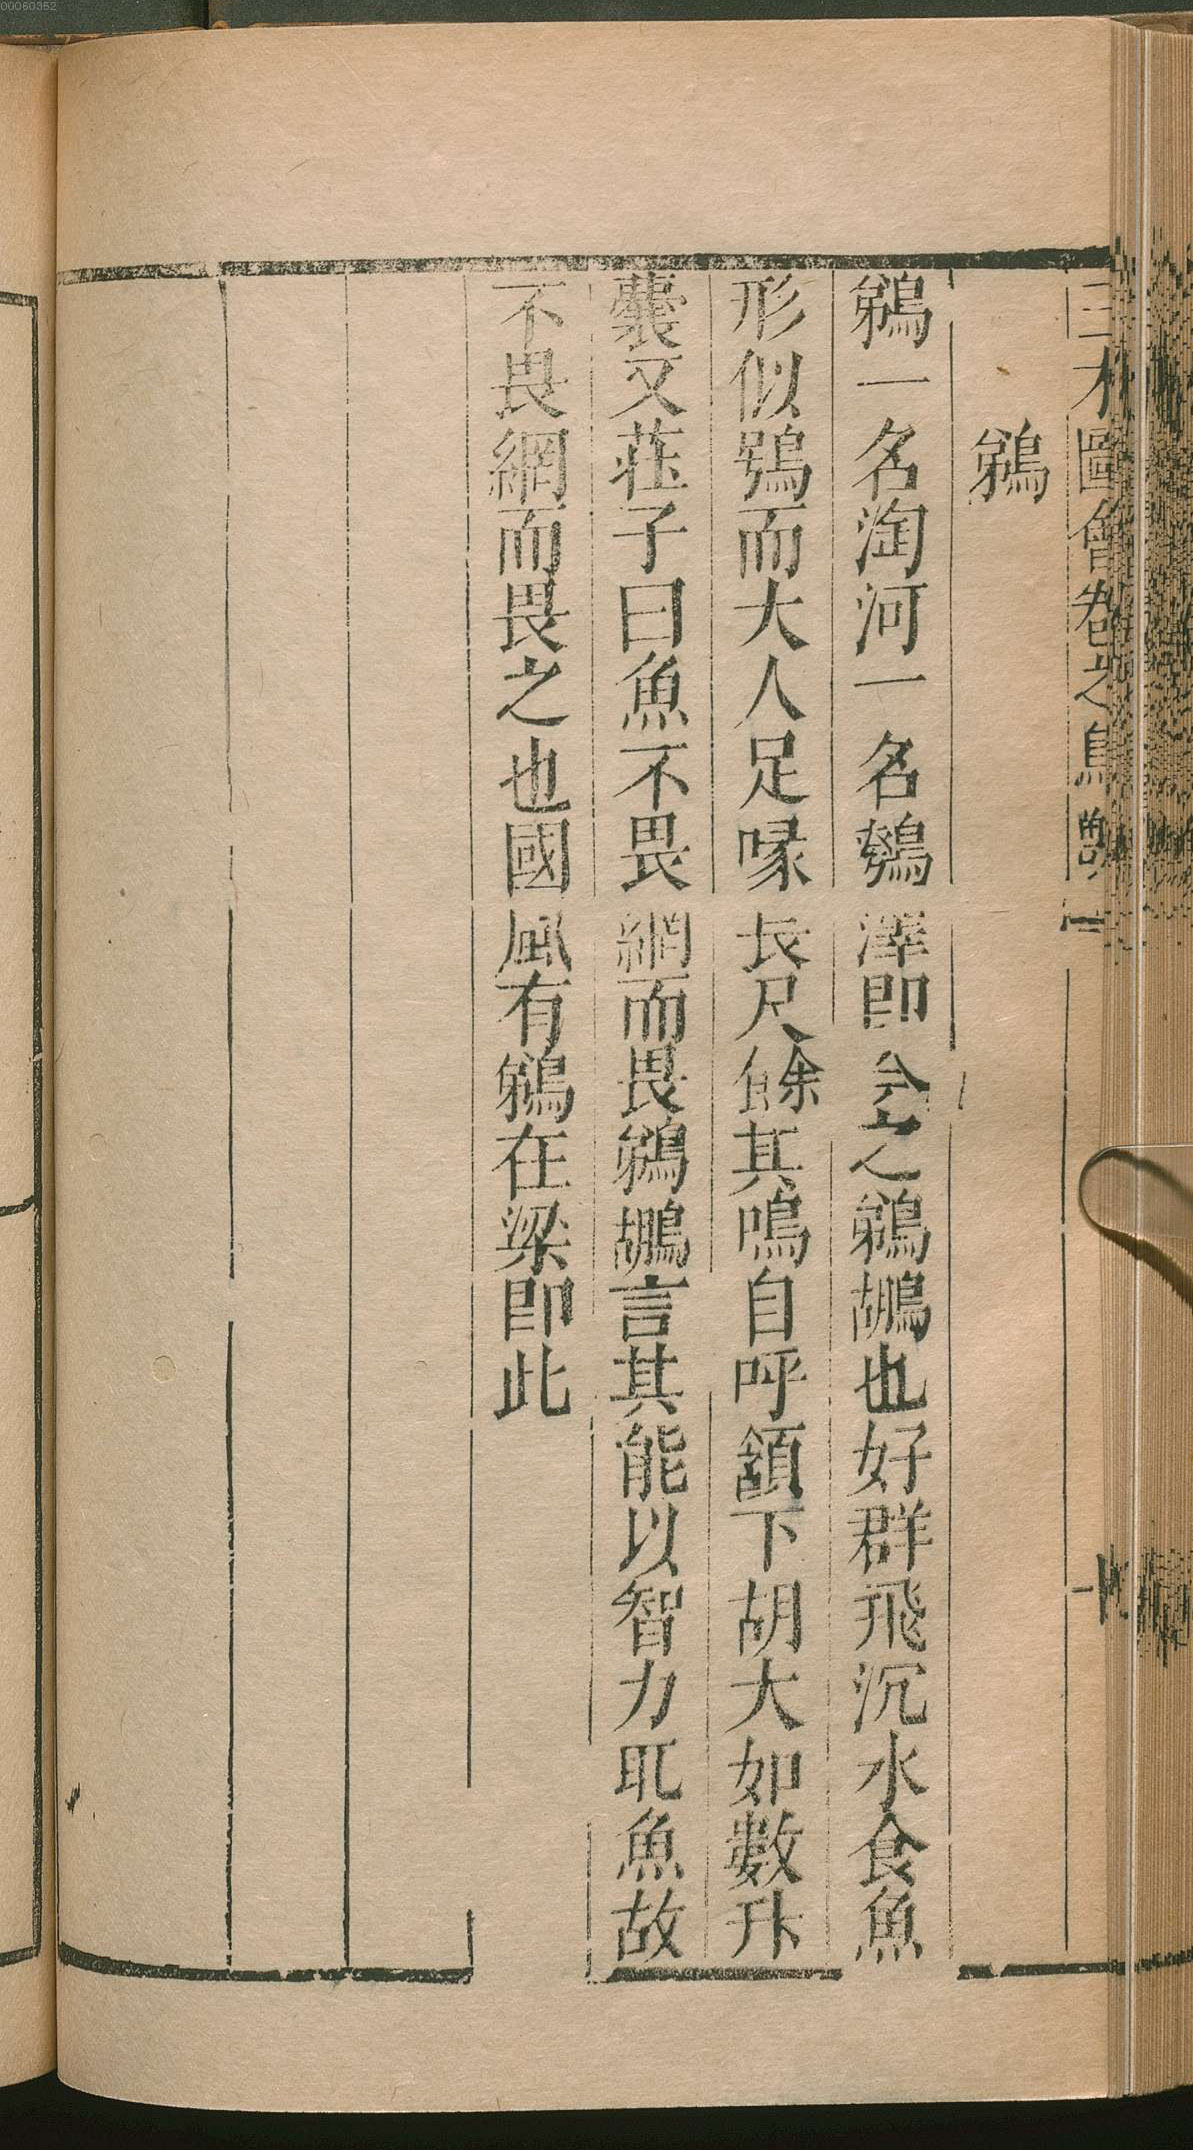 00060352
三才圖會卷之鳥獸一
鵜
鵜一名淘河一名鶩澤即今之鵜鶘也好群飛沉水食魚
形似鴞而大人足喙長尺餘其鳴自呼頷下胡大如數升
囊又莊子曰魚不畏網而畏鵜鶘言其能以智力取魚故
不畏網而畏之也國風有鵜在梁即此